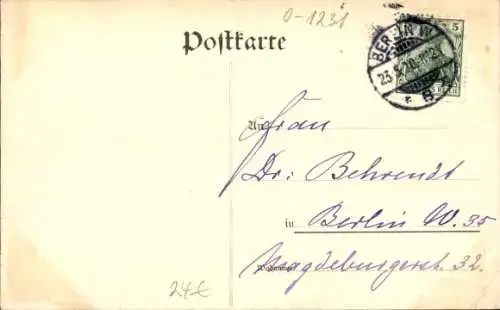 0-1231
Postkarte
5
BERLIN W.
* 8
An
Frau
Dr: Behrendt
in Berlin W. 35
Magdeburgerst. 32.
24€